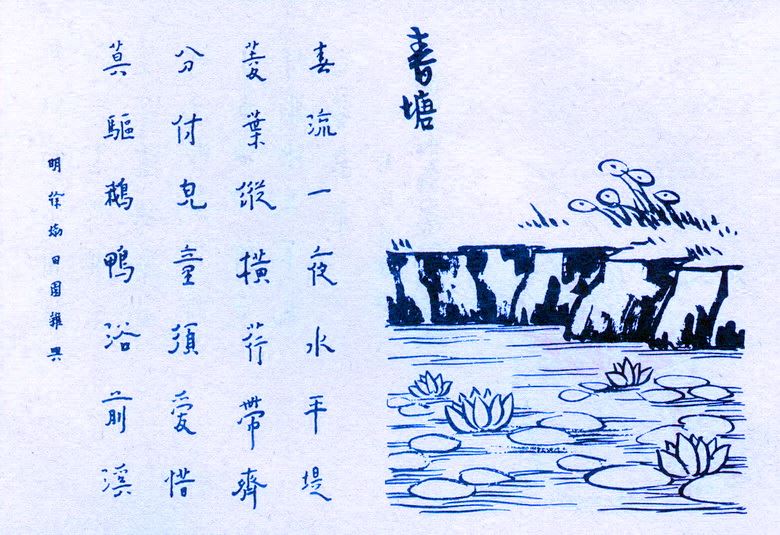 春塘
春流一夜水平堤
菱葉縱橫荇帶齊
分付兒童須愛惜
莫驅鵝鴨浴前溪
明徐田園雜興